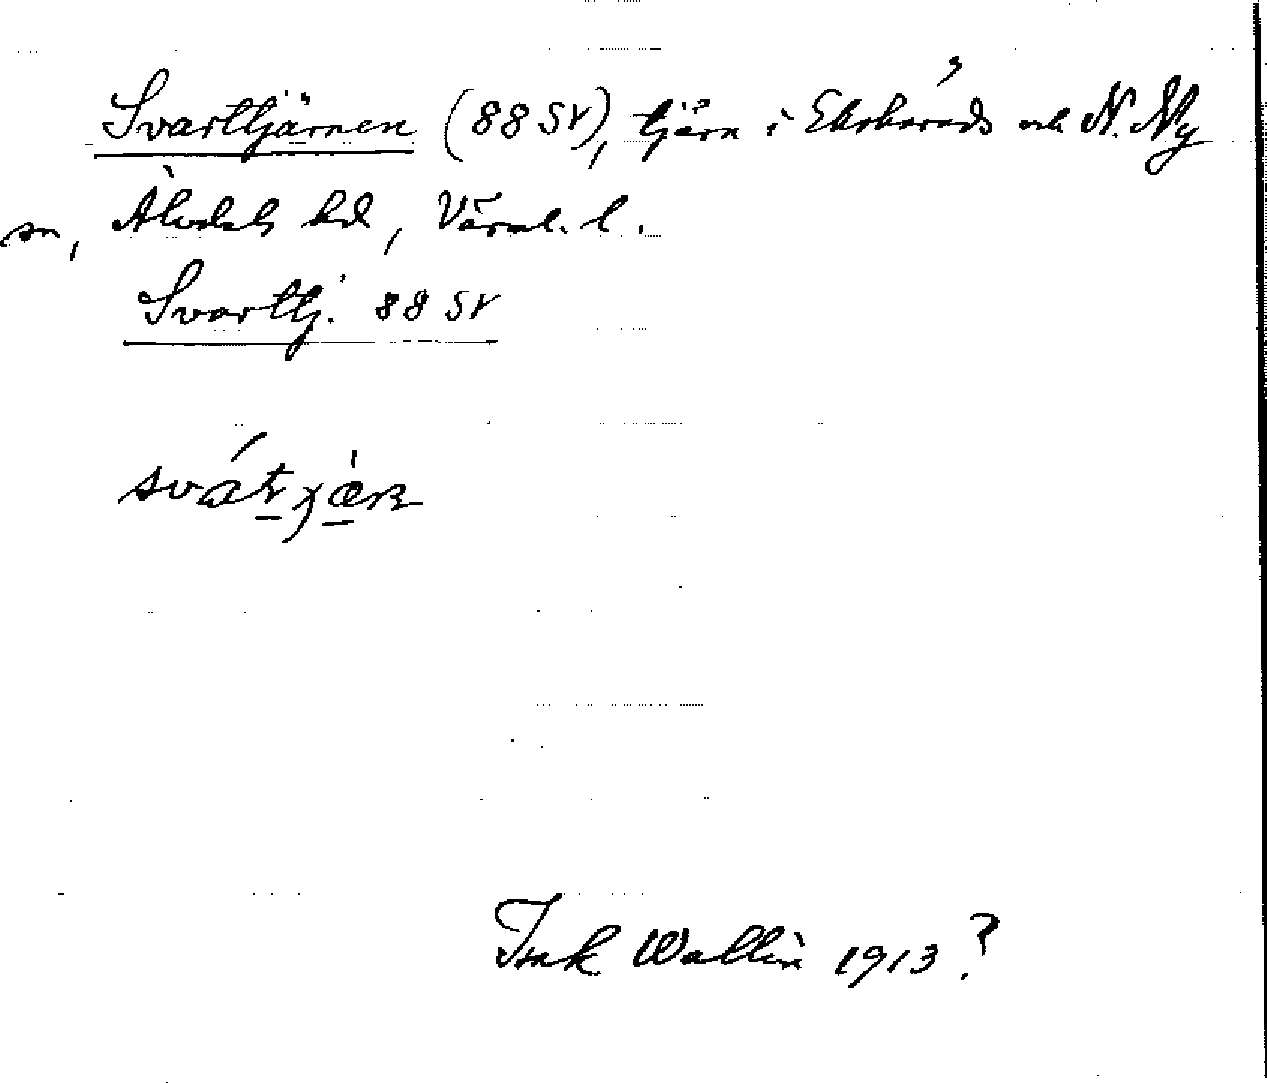 Svarttjärnen (88 SV), tjärn i Ekshärads och N. Ny
sn, Älvdals hd, Värml. l.
Svarttj. 88 SV
Isak Wallin 1913?